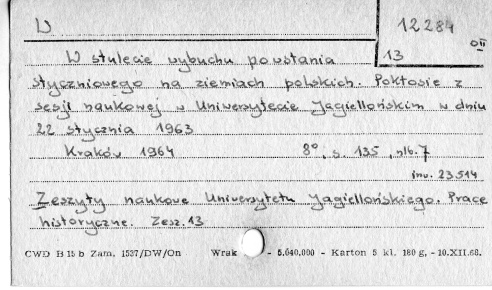 W
12284
13
W stulecie wybuchu powstania
styczniowego na ziemiach polskich. Pokłosie z
sesji naukowej w Uniwersytecie Jagiellońskim w dniu
22 stycznia 1963
Kraków 1964 8°, s. 135, nlb. 7
inw. 23.514
Zeszyty naukowe Uniwersytetu Jagiellońskiego. Prace
historyczne. Zesz. 13
CWD H 15 b Zam. 1537/DW/On Wrak - 5.040.000 - Karton 5 kl. 180 g, - 10.XII.68.